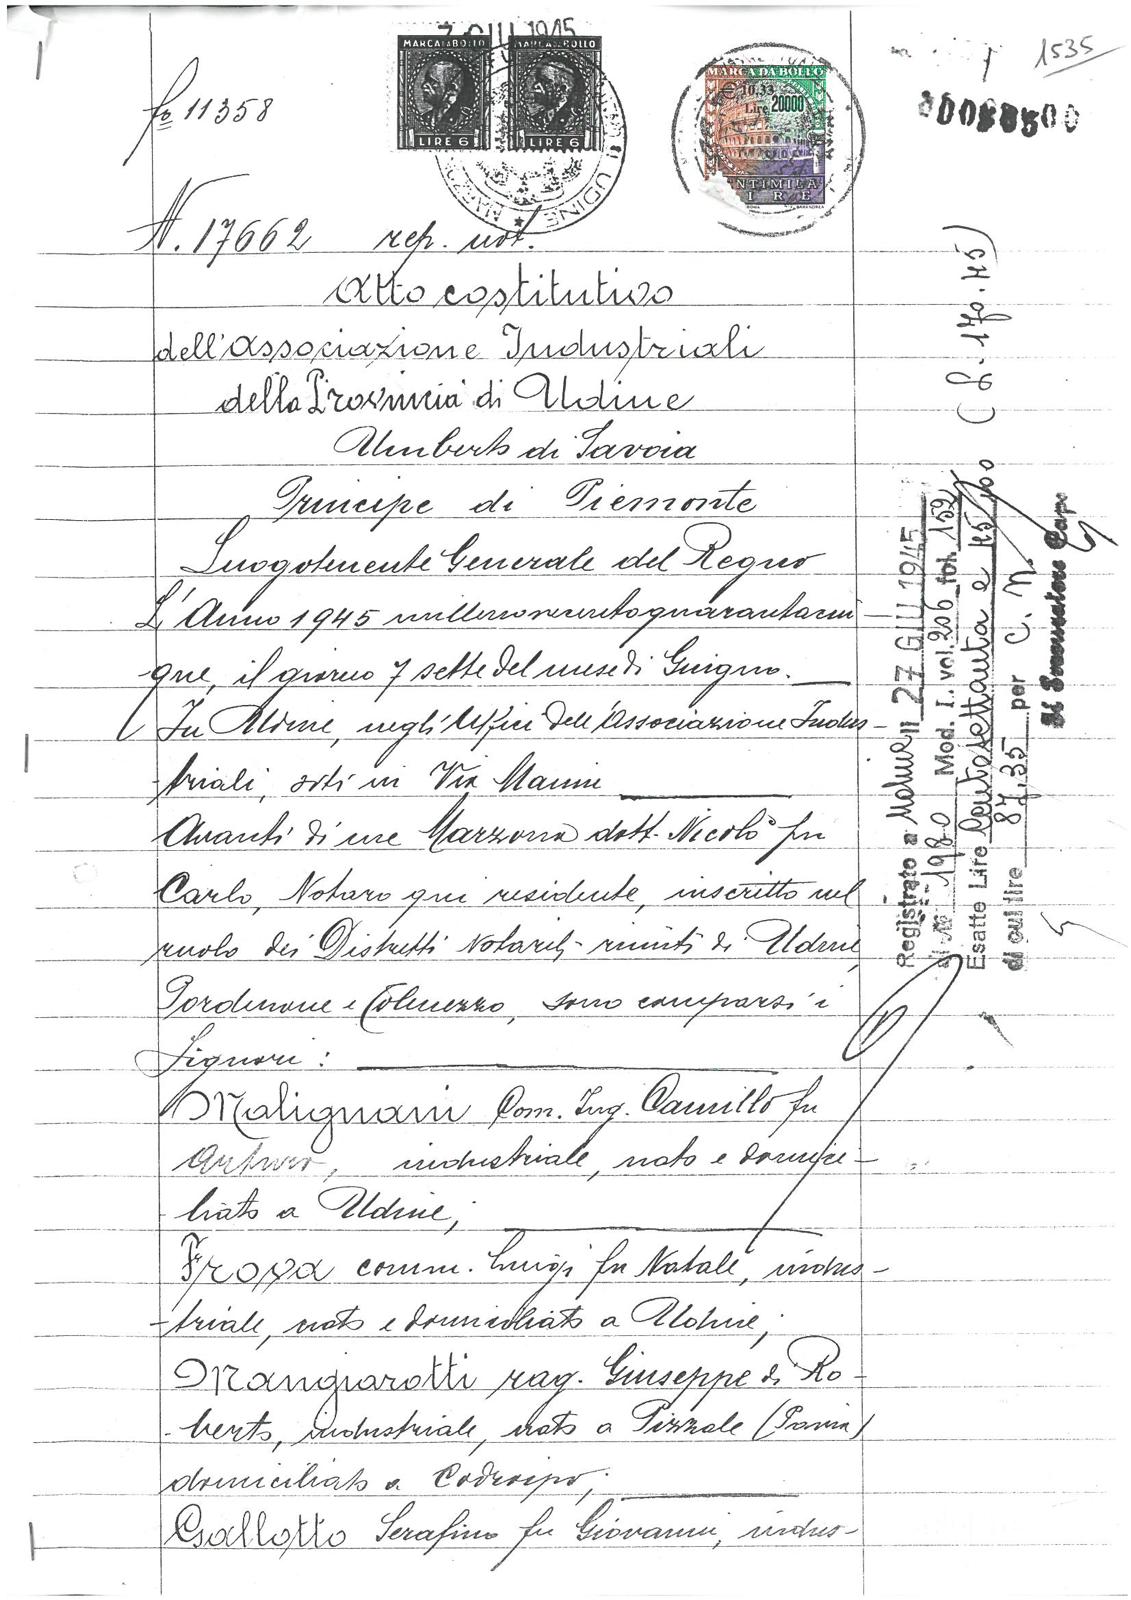 7 GIU 1945
MARCA DA BOLLO MARCA DA BOLLO
LIRE 6 LIRE 6
UDINE
MARCA DA BOLLO
€ 10,33
Lire 20000
VENTIMILA
LIRE
1535
fo 11358
N. 17662 rep. not.
Atto costitutivo
dell'Associazione Industriali
della Provincia di Udine
Umberto di Savoia
Principe di Piemonte
Luogotenente Generale del Regno
L'Anno 1945 millenovecentoquarantacin
que, il giorno 7 sette del mese di Giugno.
In Udine, negli Uffici dell'Associazione Indus-
triali, siti in Via Manin
Avanti di me Marzona dott. Nicolò fu
Carlo, Notaro qui residente, inscritto nel
ruolo dei Distretti Notarili riuniti di Udine,
Pordenone e Tolmezzo, sono comparsi i
Signori:
Malignani Com. Ing. Camillo fu
Arturo, industriale, nato e domici-
liato a Udine;
Frova comm. Luigi fu Natale, indus-
triale, nato e domiciliato a Udine;
Mangiarotti rag. Giuseppe di Ro-
berto, industriale, nato a Pizzale (Pavia)
domiciliato a Codroipo;
Gallotto Serafino fu Giovanni, indus-
Registrato a Udine il 27 GIU 1945
al N. 1980 Mod. I. vol. 206 fol. 152
Esatte Lire Centosettanta e 45/100 (L. 170.45)
di cui lire 87,35 per C. N.
Il Procuratore Capo